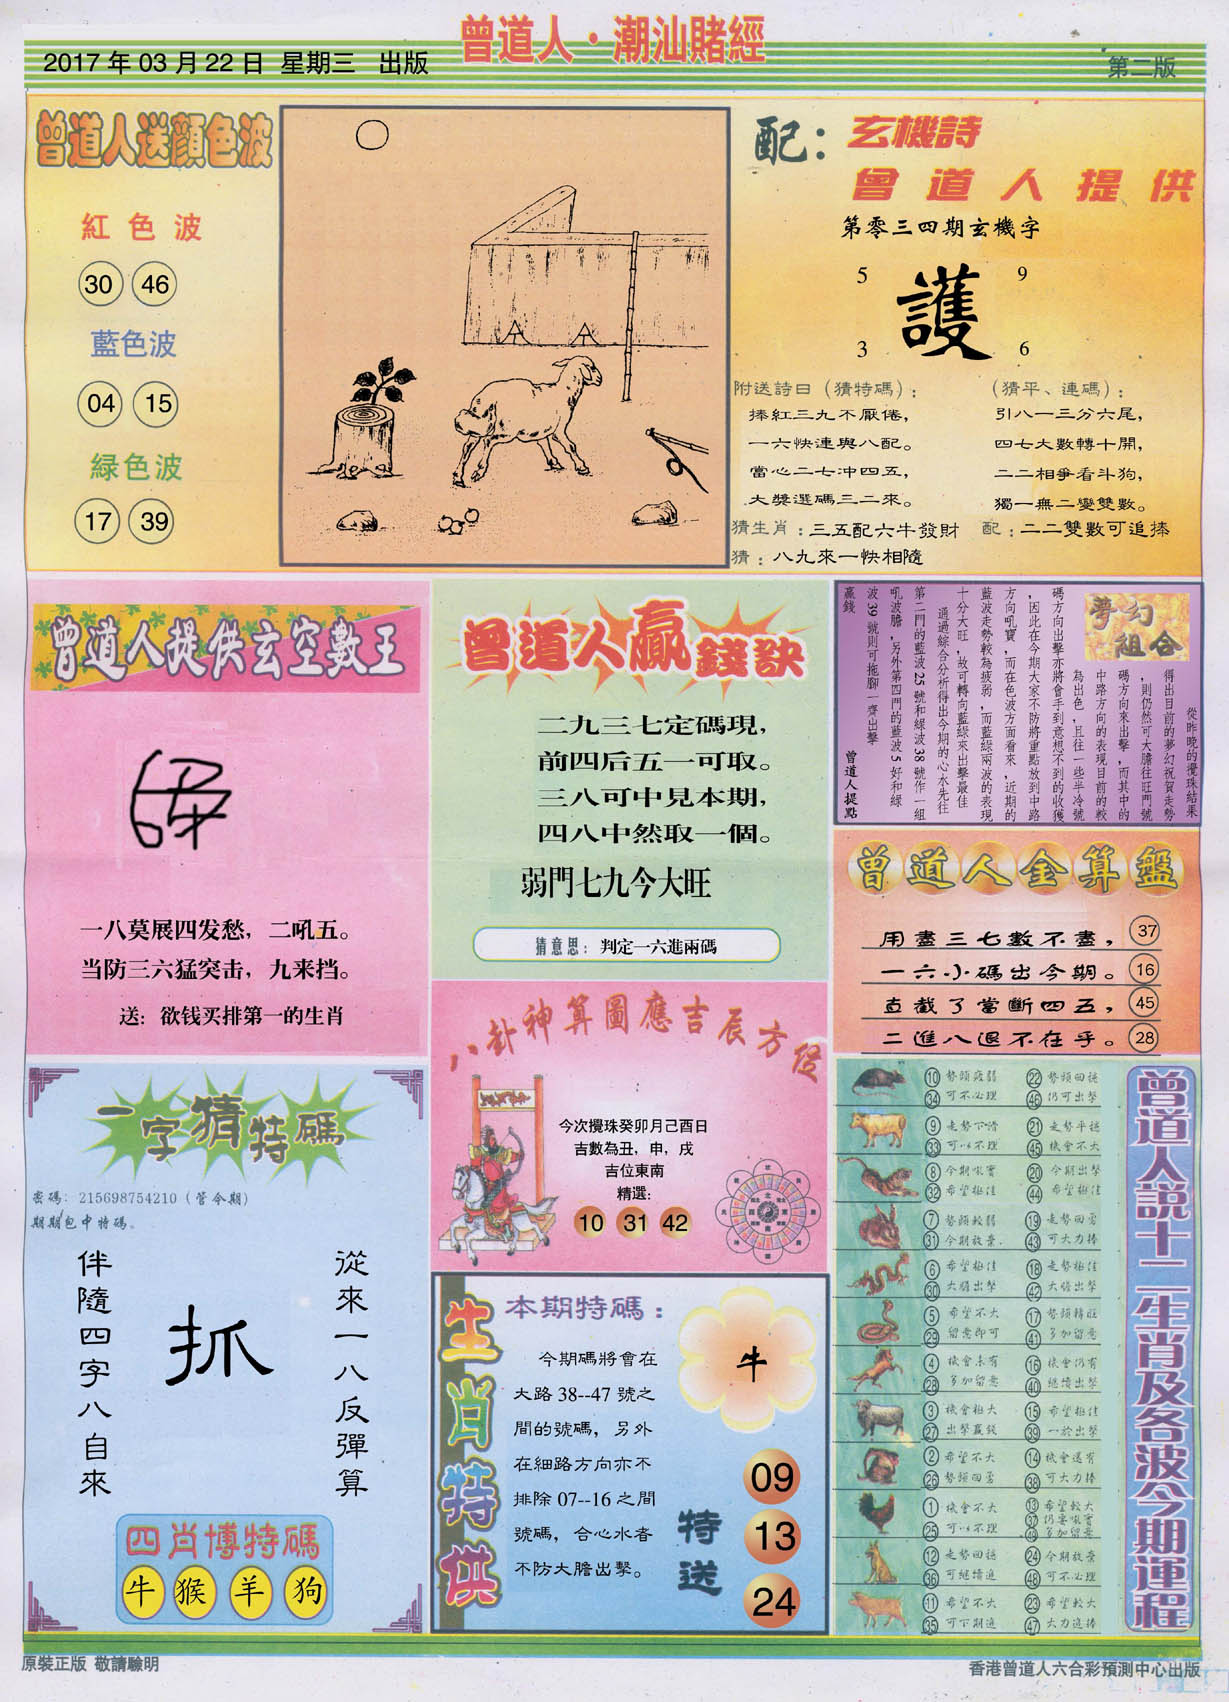 曾道人·潮汕賭經
2017 年 03 月 22 日 星期三 出版
第二版
曾道人送顏色波
紅色波
30 46
藍色波
04 15
緑色波
17 39
配:
玄機詩
曾道人提供
第零三四期玄機字
5 9
護
3 6
附送詩曰（猜特碼）:
捧紅三九不厭倦，
一六快連與八配。
當心二七冲四五，
大獎選碼三二來。
（猜平、連碼）:
引八一三分六尾，
四七大數轉十開，
二二相爭看斗狗，
獨一無二變雙數。
猜生肖：三五配六牛發財
配：二二雙數可追捧
猜：八九來一快相隨
曾道人提供玄空數王
一八莫展四发愁，二吼五。
当防三六猛突击，九来挡。
送：欲钱买排第一的生肖
曾道人贏錢訣
二九三七定碼現，
前四后五一可取。
三八可中見本期，
四八中然取一個。
弱門七九今大旺
猜意思：判定一六進兩碼
夢幻
組合
從昨晚的攪珠結果
得出目前的夢幻祝賀走勢
，則仍然可大膽往旺門號
碼方向來出擊，而其中的
中路方向的表現目前的較
為出色，且往一些半冷號
碼方向出擊亦將會手到意想不到的收獲
，因此在今期大家不防將重點放到中路
方向吼寶，而在色波方面看來，近期的
藍波走勢較為疲弱，而藍綠兩波的表現
十分大旺，故可轉向藍綠來出擊最佳
通過綜合分析得出今期的心水先往
第二門的藍波 25 號和綠波 38 號作一組
吼波膽，另外第四門的藍波 5 好和綠
波 39 號則可拖腳一齊出擊
贏錢
曾道人提點
曾道人金算盤
用盡三七數不盡， 37
一六小碼出今期。 16
直截了當斷四五， 45
二進八退不在乎。 28
一字猜特碼
密碼：215698754210（管今期）
期期包中特碼。
從來一八反彈算
抓
伴隨四字八自來
四肖博特碼
牛 猴 羊 狗
八卦神算圖應吉辰方位
今次攪珠癸卯月己酉日
吉數為丑，申，戌
吉位東南
精選:
10 31 42
生肖特供
本期特碼：
今期碼將會在
大路 38--47 號之
間的號碼，另外
在細路方向亦不
排除 07--16 之間
號碼，合心水者
不防大膽出擊。
牛
特送
09
13
24
曾道人説十二生肖及各波今期運程
10 勢頭疲弱 22 勢頭回穩
34 可不必理 46 仍可出擊
9 走勢下滑 21 走勢平穩
33 可以不理 45 機會不大
8 今期吼寶 20 今期出擊
32 希望極佳 44 希望極佳
7 勢頭較弱 19 走勢回勇
31 今期放棄 43 可大力捧
6 希望極佳 18 走勢極佳
30 大膽出擊 42 大膽出擊
5 希望不大 17 勢頭轉旺
29 留意即可 41 多加留意
4 機會未有 16 機會仍有
28 多加留意 40 繼續出擊
3 機會極大 15 希望極佳
27 出擊贏錢 39 一於出擊
2 希望不大 14 機會還有
26 勢頭回勇 38 可大力捧
1 機會不大 13 希望較大
25 可以不理 37 仍要吼實
49 多加留意
12 走勢回穩 24 今期放棄
36 可繼續追 48 可不必理
11 希望不大 23 希望較大
35 可下期追 47 大力追捧
原裝正版 敬請驗明
香港曾道人六合彩預測中心出版